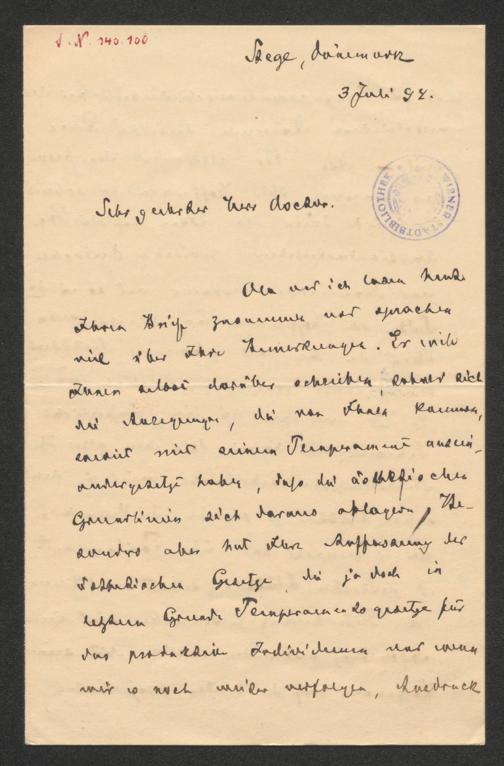 J. N. 140.100
Stege, Dänemark
3 Juli 94.
WIENER STADTBIBLIOTHEK
Sehr geehrter Herr Doctor.
Ola und ich lasen heute
Ihren Brief zusammen und sprachen
viel über Ihre Bemerkungen. Er will
Ihnen selbst darüber schreiben, sobald sich
die Anregungen, die von Ihnen kommen,
soweit mit seinem Temperament ausein-
andergesetzt haben, dass die ästhetischen
Grundlinien sich daraus ablagern. Be-
sonders aber hat Ihre Auffassung der
ästhetischen Gesetze, die ja doch in
letztem Grunde Temperamentsgesetze für
das produktive Individuum und wenn
wir es noch weiter verfolgen, Ausdruck